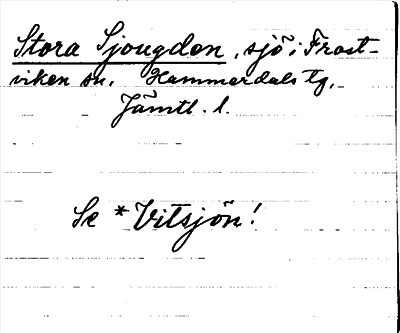 Stora Sjougden, sjö i Frost-
viken sn, Hammerdals tg,
Jämtl. l.
Se *Vitsjön!